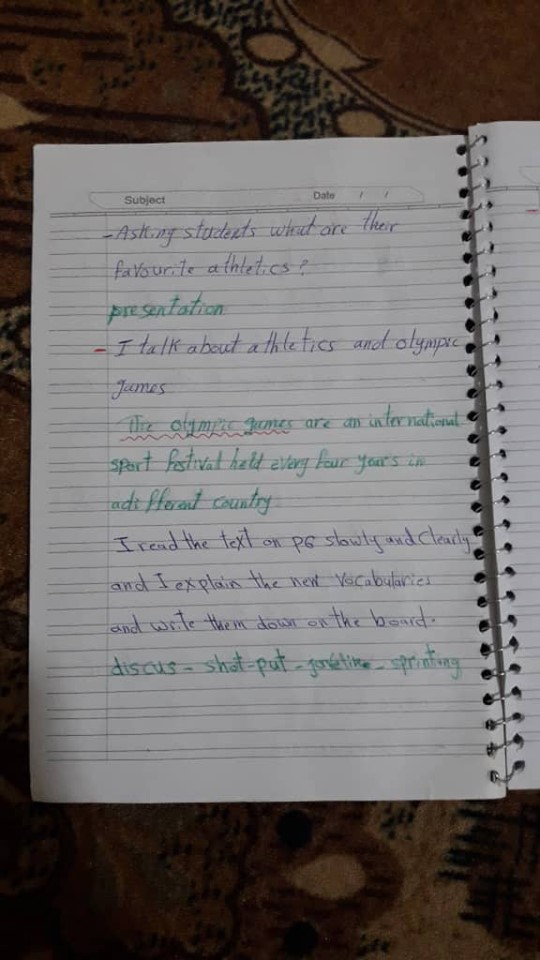 Subject Date / /
- Asking students what are their
favourite athletics?
presentation
- I talk about athletics and olympic
games
The olympic games are an international
sport festival held every four years in
a different country
I read the text on P6 slowly and Clearly
and I explain the new Vocabularies
and write them down on the board.
discus - shot-put - - sprinting